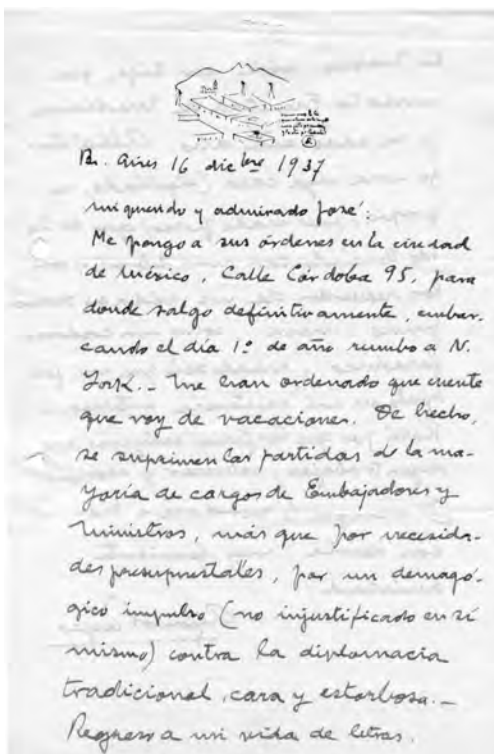 Bs. Aires 16 dicbre 1937
mi querido y admirado José:
Me pongo a sus órdenes en la ciudad
de México, Calle Córdoba 95, para
donde salgo definitivamente, embar-
cando el día 1º de año rumbo a N.
York.- Me han ordenado que cuente
que voy de vacaciones. De hecho,
se suprimen las partidas de la ma-
yoría de cargos de Embajadores y
Ministros, más que por necesida-
des presupuestales, por un demagó-
gico impulso (no injustificado en sí
mismo) contra la diplomacia
tradicional, cara y estorbosa.-
Regreso a mi vida de letras.